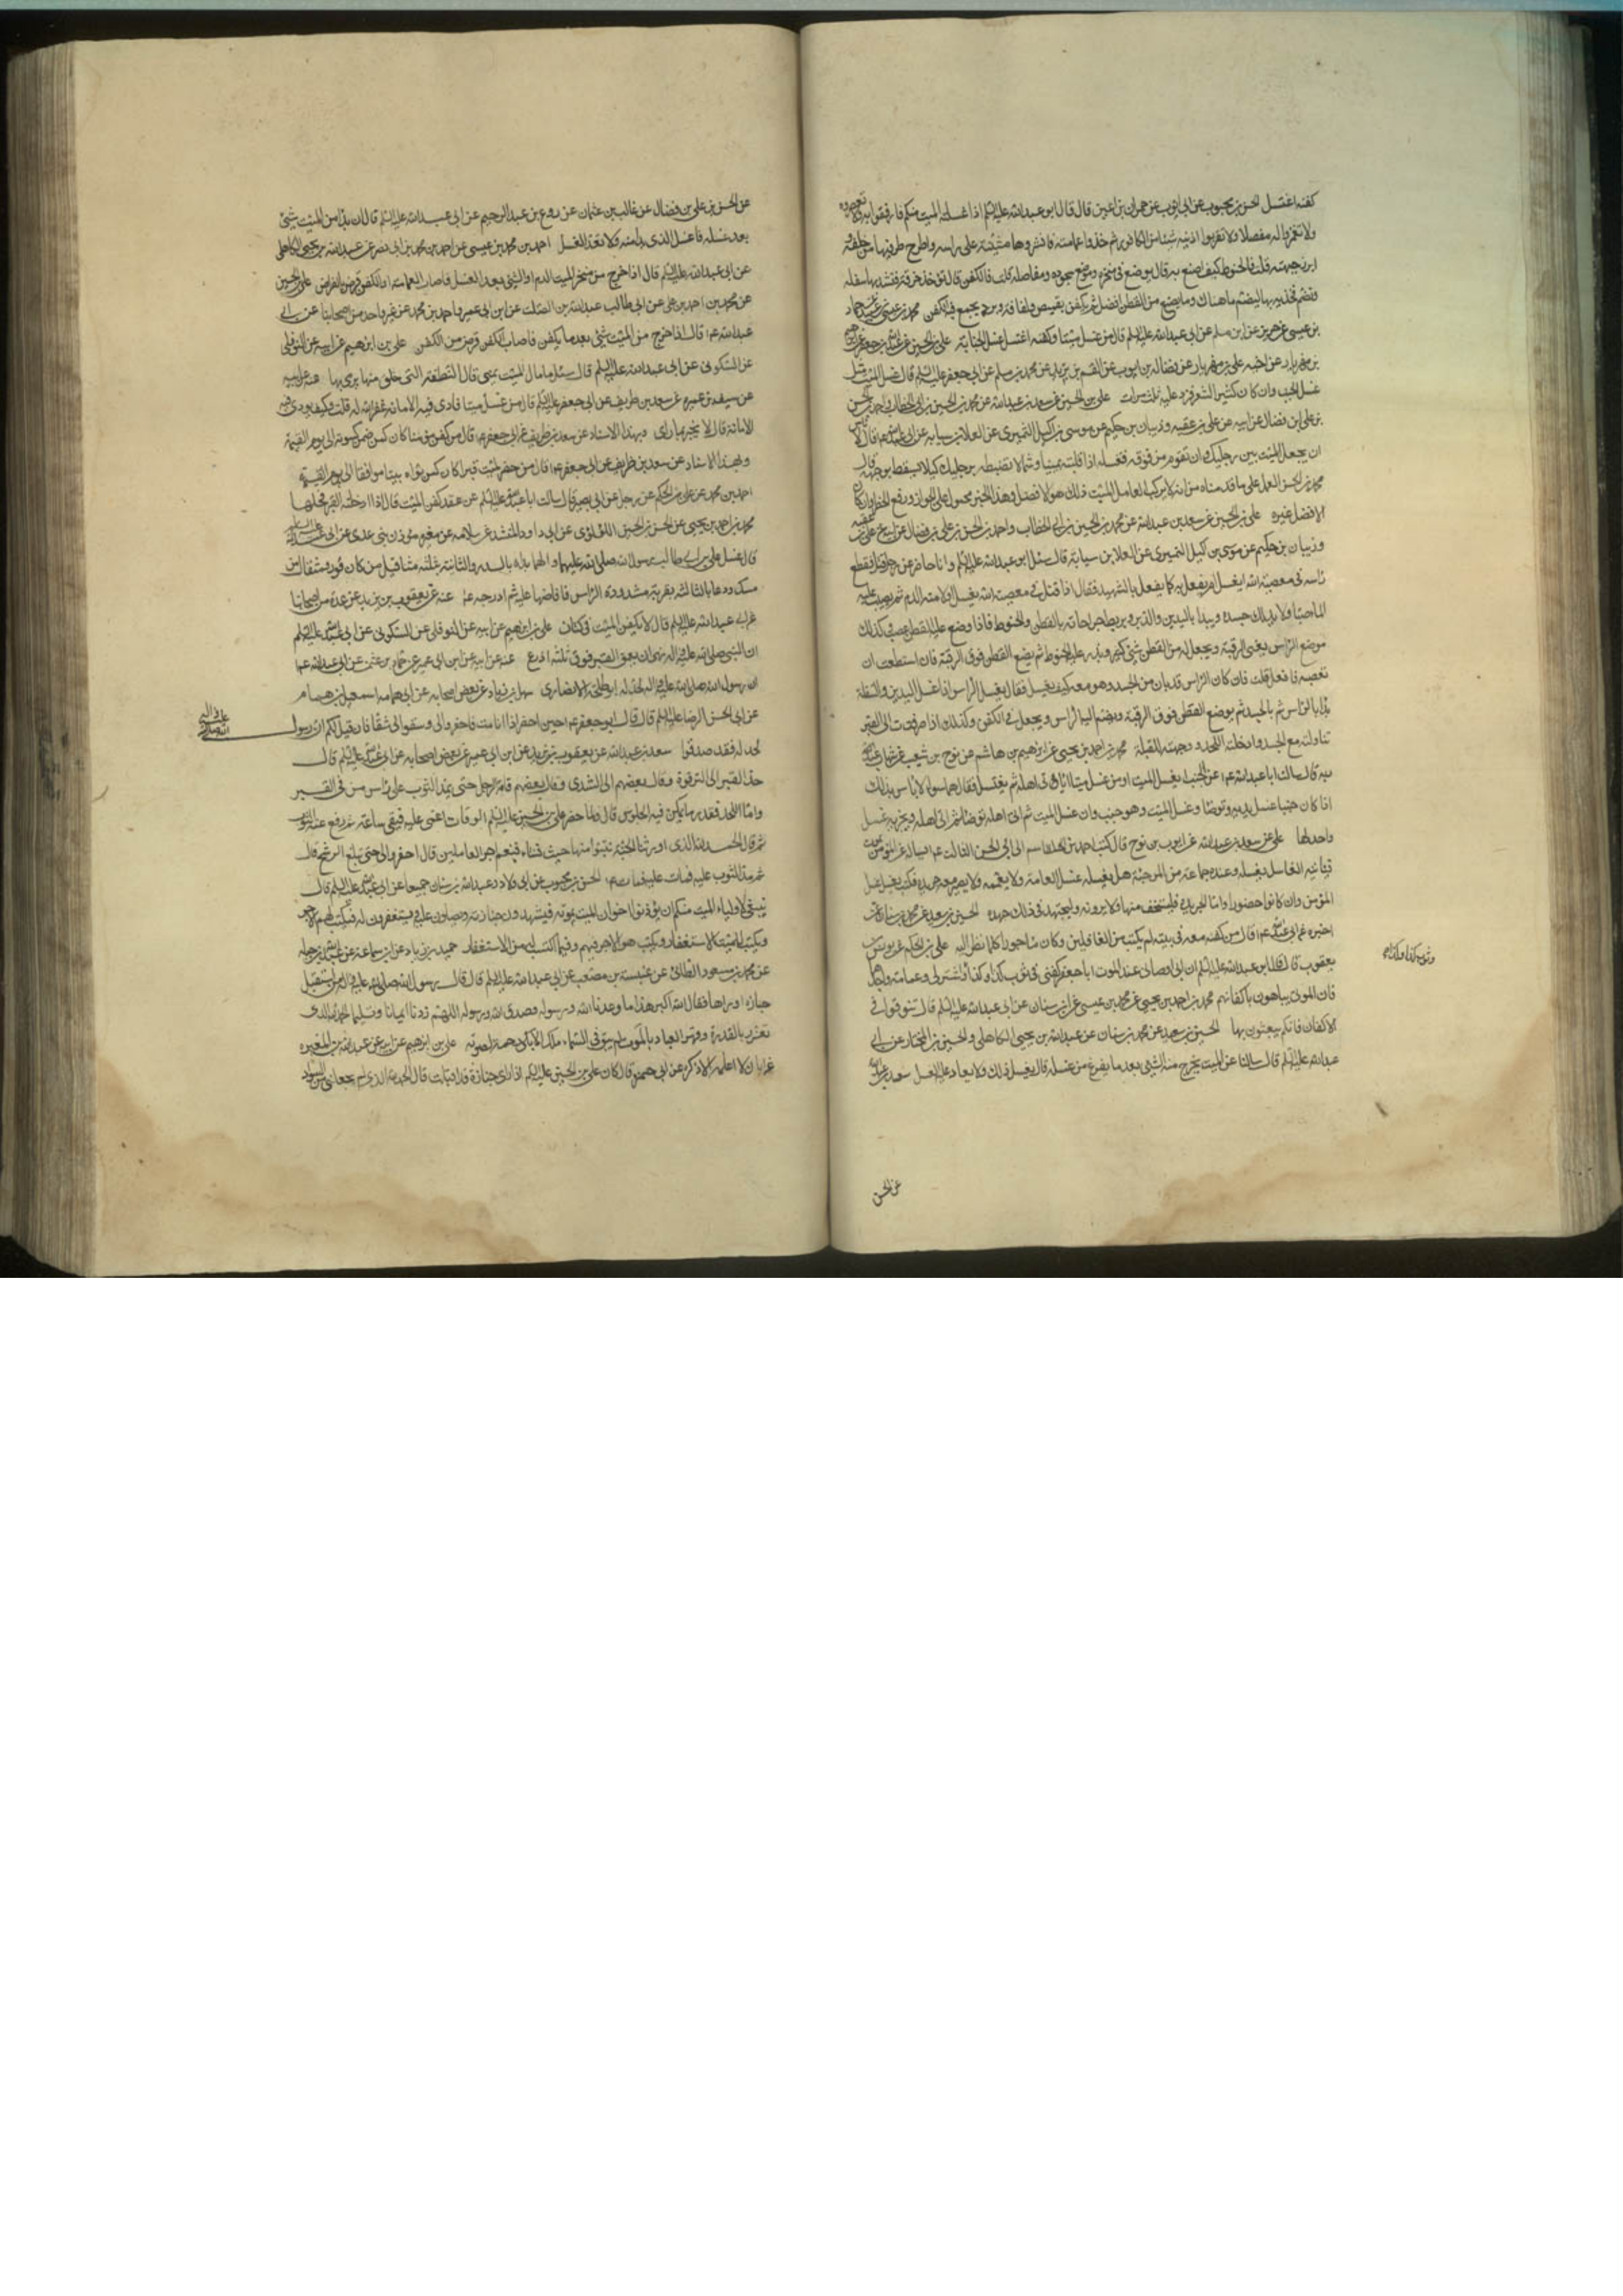 كفنه اغتسل الحسن بن محبوب عن ابى ايوب عن حمران بن اعين قال قال ابو عبدالله عليه السلم اذا غسلتم الميت منكم فارفقوا به ولا تعصروه
ولا تغمزوا له مفصلا ولا تقربوا اذنيه شيئا من الكافور ثم خذوا عمامته فانشروها مثنية على راسه واطرح طرفيها من خلفه و
ابرز جبهته قلت فالحنوط كيف اصنع به قال يوضع فى منخره وموضع سجوده ومفاصله قلت فالكفن قال تؤخذ خرقة فتشد بها سفله
وتضم فخذيه بها ليضم ما هناك وما يصنع من القطن افضل ثم يكفن بقميص ولفافة وبرد يجمع فيه الكفن محمد بن عيسى
بن عيسى عن حريز عن ابن مسلم عن ابى عبدالله عليه السلم قال من غسل ميتا وكفنه اغتسل غسل الجنابة على بن الحسين
بن مهزيار عن اخيه على بن مهزيار عن فضاله بن ايوب عن القسم بن بريد عن محمد بن مسلم عن ابى جعفر عليه السلم قال غسل الميت مثل
غسل الجنب وان كان كثير الشعر فزد عليه ثلث مرات على بن الحسين عن سعد بن عبدالله عن محمد بن الحسين بن ابى الخطاب واحمد بن الحسن
بن على بن فضال عن ابيه عن على بن عقبه وذبيان بن حكيم عن موسى بن اكيل النميرى عن العلا بن سيابه عن ابى عبدالله ع قال لا باس
ان يجعل الميت بين رجليك وان تقوم من فوقه فتغسله اذا قلبته يمينا وشمالا تضبطه برجليك كيلا يسقط لوجهه قال
محمد بن الحسن العمل على ما قدمناه من انه لا يركب الغاسل الميت فذلك هو الافضل وهذا الخبر محمول على الجواز ورفع الحظر وان كان
الافضل غيره على بن الحسين عن سعد بن عبدالله عن محمد بن الحسين بن ابى الخطاب واحمد بن الحسن بن على بن فضال عن ابيه عن على بن عقبه
وذبيان بن حكيم عن موسى بن اكيل النميرى عن العلا بن سيابة قال سئل ابو عبدالله عليه السلم وانا حاضر عن رجل قتل فقطع
راسه فى معصية الله ايغسل ام يفعل به كما يفعل بالشهيد فقال اذا قتل فى معصية الله يغسل اولا منه الدم ثم يصب عليه
الماء صبا ولا يدلك جسده ويبدا باليدين والدبر ويربط جراحاته بالقطن والحنوط فاذا وضع عليه القطن عصب وكذلك
موضع الراس يعنى الرقبة ويجعل له من القطن شئ كثير ويذر عليه الحنوط ثم يضع القطن فوق الرقبة فان استطعت ان
تعصبه فافعل قلت فان كان الراس قد بان من الجسد وهو معه كيف يغسل فقال يغسل الراس اذا غسل اليدين والسفلة
بدا بالراس ثم بالجسد ثم يوضع القطن فوق الرقبة ويضم اليه الراس ويجعل فى الكفن وكذلك اذا صرفت الى القبر
تناولته مع الجسد وادخلته اللحد ووجهته للقبلة محمد بن احمد بن يحيى عن ابرهيم بن هاشم عن نوح بن شعيب عن شهاب بن عبد
ربه قال سالت ابا عبدالله ع عن الجنب ايغسل الميت او من غسل ميتا اياتى اهله ثم يغتسل فقال هما سوا لا باس بذلك
اذا كان جنبا غسل يديه وتوضا وغسل الميت وهو جنب وان غسل الميت ثم اتى اهله توضا ثم اتى اهله ويجزيه غسل
واحد لهما على عن سعد بن عبدالله عن ايوب بن نوح قال كتب احمد بن القاسم الى ابى الحسن الثالث ع يساله عن المؤمن يموت
فياتيه الغاسل يغسله وعنده جماعة من المرجئة هل يغسله غسل العامة ولا يعممه ولا يصير معه جريدة فكتب يغسل غسل
المؤمن وان كانوا حضورا واما الجريدة فليستخف بها ولا يرونه وليجتهد فى ذلك جهده الحسين بن سعيد عن محمد بن سنان عمن
اخبره عن ابى عبدالله ع قال من كفنه معه فى بيته لم يكتب من الغافلين وكان ماجورا كلما نظر اليه على بن الحكم عن يونس بن
يعقوب قال قال ابو عبدالله عليه السلم ان ابى اوصانى عند الموت يا جعفر كفنى فى ثوب كذا وكذا واشتر لى وعمامة واجدها
فان الموتى يتباهون باكفانهم محمد بن احمد بن يحيى عن محمد بن عيسى عن ابن سنان عن ابى عبدالله عليه السلم قال تنوقوا فى
الاكفان فانكم تبعثون بها الحسين بن سعيد عن محمد بن سنان عن عبدالله بن يحيى الكاهلى والحسين بن المختار عن ابى
عبدالله عليه السلم قال سالنا عن الميت يخرج منه الشئ بعد ما يفرغ من غسله قال يغسل ذلك ولا يعاد عليه الغسل سعد بن عبدالله
وثوب كذا وكذا
عن الحسن
عن الحسن بن على بن فضال عن غالب بن عثمان عن روح بن عبد الرحيم عن ابى عبدالله عليه السلم قال ان بدا من الميت شئ
بعد غسله فاغسل الذى بدا منه ولا تعد الغسل احمد بن محمد بن عيسى عن احمد بن محمد بن ابى نصر عن عبدالله بن يحيى الكاهلى
عن ابى عبدالله عليه السلم قال اذا خرج من منخر الميت الدم او الشئ بعد الغسل فاصاب العمامة او الكفن قرض بالمقراض على بن الحسين
عن محمد بن احمد بن على عن ابى طالب عبدالله بن الصلت عن ابن ابى عمير واحمد بن محمد عن غير واحد من اصحابنا عن ابى
عبدالله ع قال اذا خرج من الميت شئ بعد ما يكفن فاصاب الكفن قرض من الكفن على بن ابرهيم عن ابيه عن النوفلى
عن السكونى عن ابى عبدالله عليه السلم قال سئل ما بال الميت يمنى قال النطفة التى خلق منها يرمى بها عنه عن ابيه
عن سيف بن عميرة عن سعد بن طريف عن ابى جعفر عليه السلم قال من غسل ميتا فادى فيه الامانة غفر الله له قلت وكيف يودى فيه
الامانة قال لا يخبر بما راى وبهذا الاسناد عن سعد بن طريف عن ابى جعفر ع قال من كفن مؤمنا كان كمن ضمن كسوته الى يوم القيمة
وبهذا الاسناد عن سعد بن طريف عن ابى جعفر ع قال من حفر لميت قبرا كان كمن بواه بيتا موافقا الى يوم القيمة
احمد بن محمد عن على بن الحكم عن رجل عن ابى بصير قال سالت ابا عبدالله عليه السلم عن عقد كفن الميت قال اذا ادخلته القبر فحلها
محمد بن احمد بن يحيى عن الحسن بن الحسين اللؤلؤى عن ابى داود المنشد عن سلامه عن مغيره مؤذن بنى عدى عن ابى عبدالله عليه السلم
قال غسل على بن ابى طالب رسول الله صلى الله عليهما والهما بداه بالسدر والثانية ثلثه مثاقيل من كافور ومثقال من
مسك ودعا بالثالثه بقربة مشدودة الراس فافاضها عليه ثم ادرجه ع عنه عن يعقوب بن يزيد عن عدة من اصحابنا
عن ابى عبدالله عليه السلم قال لا يكفن الميت فى كتان على بن ابرهيم عن ابيه عن النوفلى عن السكونى عن ابى عبدالله عليه السلم
ان النبى صلى الله عليه واله نهى ان يعمق القبر فوق ثلثة اذرع عنه عن ابيه عن ابن ابى عمير عن حماد بن عثمن عن ابى عبدالله ع
ان رسول الله صلى الله عليه واله لحد له ابو طلحة الانصارى سهل بن زياد عن بعض اصحابه عن ابى همام اسمعيل بن همام
عن ابى الحسن الرضا عليه السلم قال قال ابو جعفر ع حين احضر اذا انا مت فاحفروا لى وشقوا لى شقا فان قيل لكم ان رسول
لحد له فقد صدقوا سعد بن عبدالله عن يعقوب بن يزيد عن ابن ابى عمير عن بعض اصحابه عن ابى عبدالله عليه السلم قال
حد القبر الى الترقوة وقال بعضهم الى الثدى وقال بعضهم قامة الرجل حتى يمد الثوب على راس من فى القبر
واما اللحد فقدر ما يمكن فيه الجلوس قال ولما حضر على بن الحسين عليه السلم الوفات اغمى عليه فبقى ساعة ثم رفع عنه الثوب
ثم قال الحمد لله الذى اورثنا الجنة نتبوا منها حيث نشاء فنعم اجر العاملين قال احفروا لى حتى تبلغ الرشح قال
ثم مد الثوب عليه فمات عليه السلم الحسن بن محبوب عن ابى ولاد وعبدالله بن سنان جميعا عن ابى عبدالله عليه السلم قال
ينبغى لاولياء الميت منكم ان يؤذنوا اخوان الميت بموته فيشهدون جنازته ويصلون عليه ويستغفرون له فيكتب لهم الاجر
ويكتب للميت الاستغفار ويكتب هو الاجر فيهم وفيما اكتسب له من الاستغفار حميد بن زياد عن ابن سماعة عن عبدالله بن جبله
عن محمد بن مسعود الطائى عن عنبسة بن مصعب عن ابى عبدالله عليه السلم قال قال رسول الله صلى الله عليه واله من استقبل
جنازة او راها فقال الله اكبر هذا ما وعدنا الله ورسوله وصدق الله ورسوله اللهم زدنا ايمانا وتسليما الحمد لله الذى
تعزز بالقدرة وقهر العباد بالموت لم يبق فى السماء ملك الا بكى رحمة لصوته على بن ابرهيم عن ابيه عن عبدالله بن المغيره
عن ابان لا اعلمه الا ذكره عن ابى حمزه قال كان على بن الحسين عليه السلم اذا راى جنازة قد اقبلت قال الحمد لله الذى لم يجعلنى من السواد